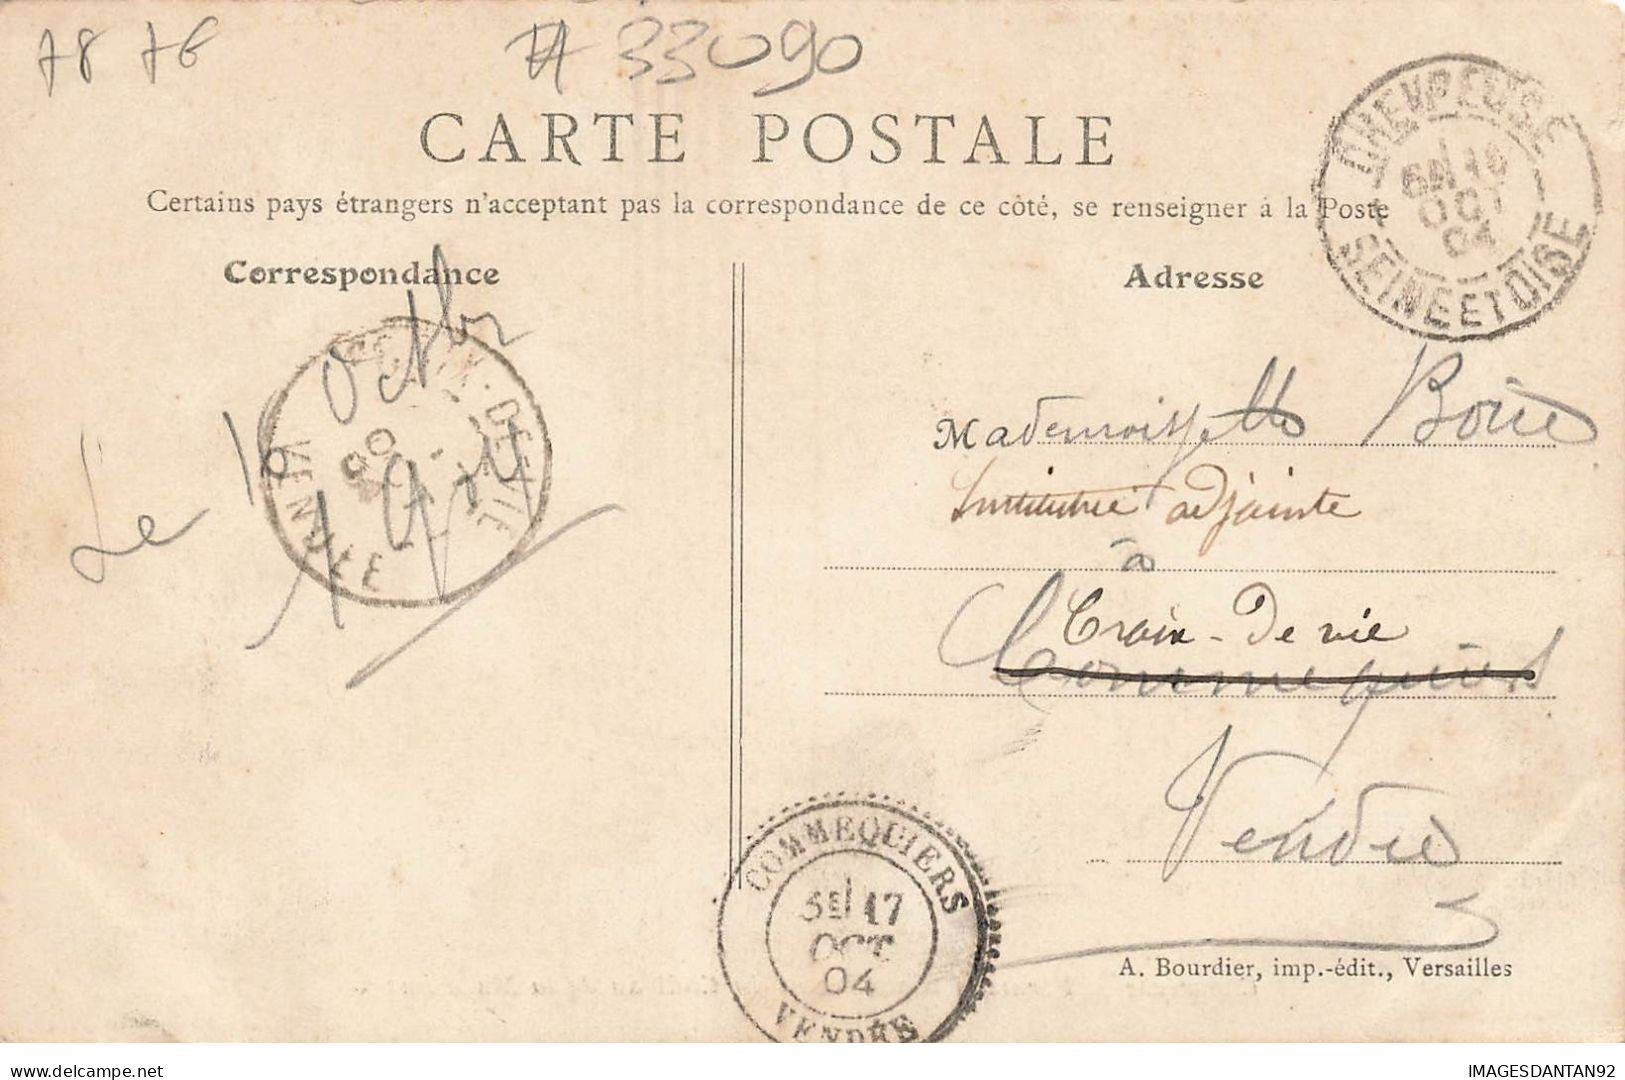 78 76
# 33090
CARTE POSTALE
Certains pays étrangers n'acceptant pas la correspondance de ce côté, se renseigner à la Poste
CHEVREUSE
16
OCT
04
SEINE ET OISE
Correspondance
Adresse
Le 16 Octbr
VIE
VENDÉE
Mademoiselle
Institutrice adjointe
à
Croix-de vie
Commequiers
Vendée
COMMEQUIERS
17
OCT
04
VENDÉE
A. Bourdier, imp.-édit., Versailles
IMAGESDANTAN92
delcampe.net